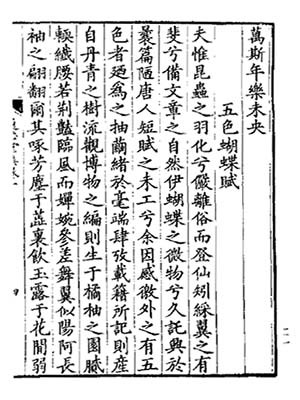 萬斯年樂未央
五色蝴蝶賦
夫惟昆蟲之羽化兮儼離俗而登仙矧綵翼之有
斐兮備文章之自然伊蝴蝶之微物兮久託興於
彙篇陋唐人短賦之未工兮余因感徼外之有五
色者迺為之抽繭緒於毫端肆攷載籍所記則產
自丹青之樹流觀博物之編則生于橘柚之園膩
輭纖腰若荆豔臨風而嬋婉參差舞翼似陽阿長
袖之翩翻爾其啄芳塵于蕋裏飲玉露于花間弱